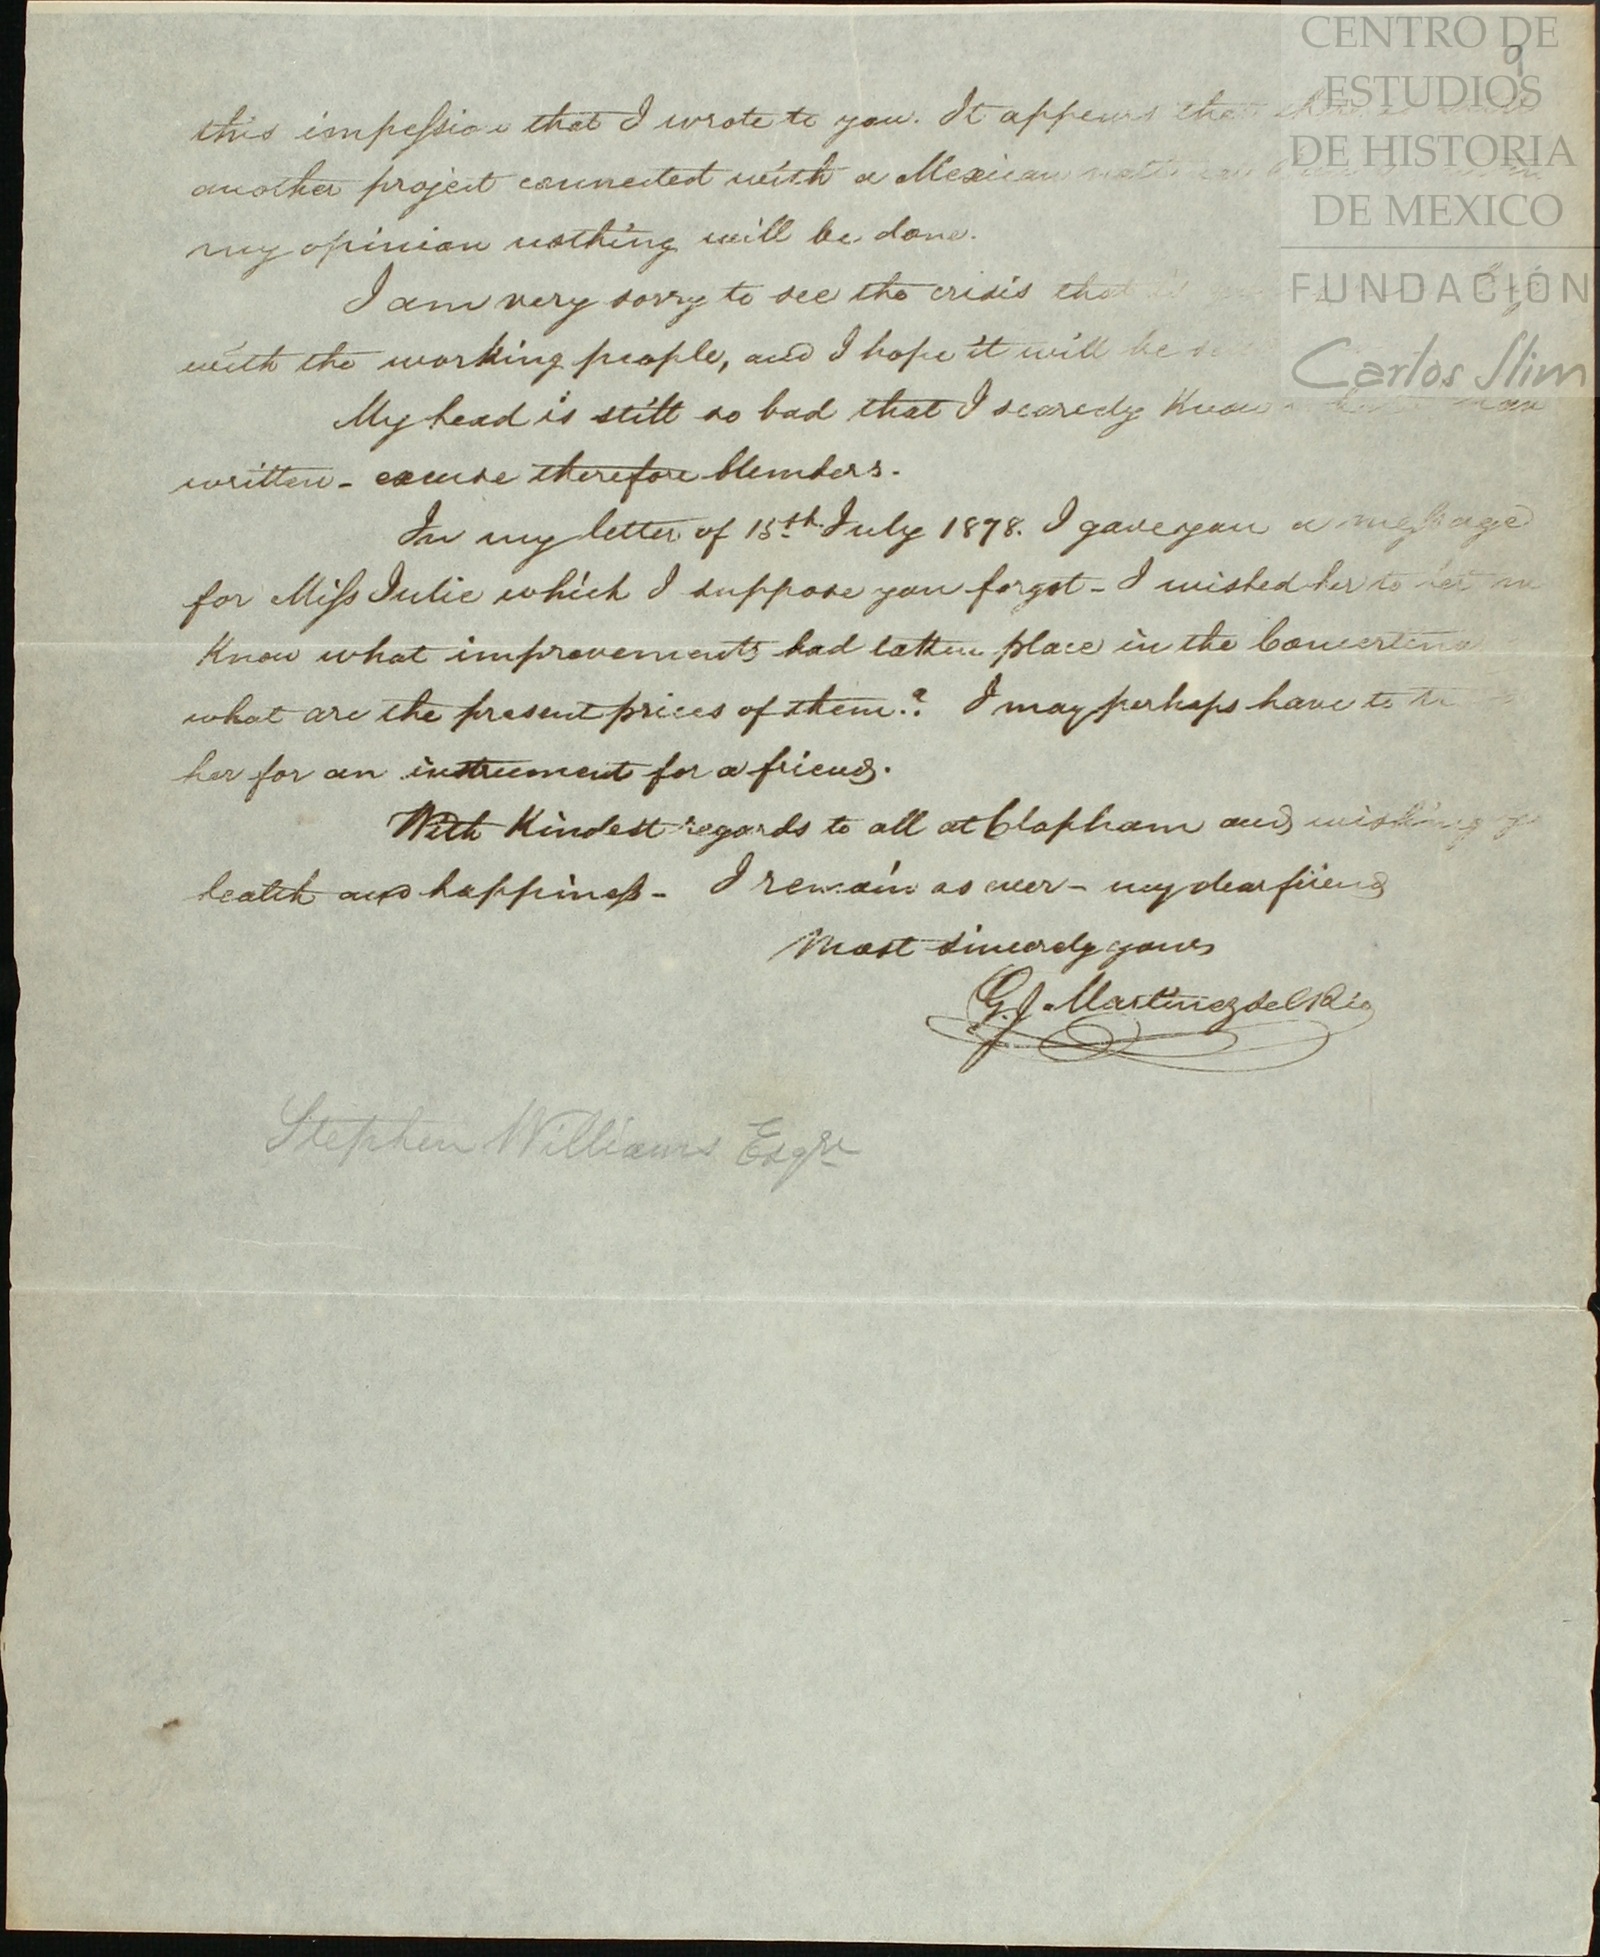 CENTRO DE
ESTUDIOS
DE HISTORIA
DE MEXICO
FUNDACIÓN
Carlos Slim
9
this impession that I wrote to you. It appears that there is
another project connected with a Mexican
my opinion nothing will be done.
I am very sorry to see the crisis that is
with the working people, and I hope it will be
My head is still so bad that I scarcely Know
written - excuse therefore blunders.
In my letter of 15th. July 1878. I gave you a message
for Miss Julie which I suppose you forgot - I wished her to let me
Know what improvements had taken place in the Concertina
what are the present prices of them.? I may perhaps have to
her for an instrument for a friend.
With Kindest regards to all at Clapham and wishing
health and happiness - I remain as ever - my dear friend
Most sincerely yours
G. J. Martinez del Rio
Stephen Williams Esqre